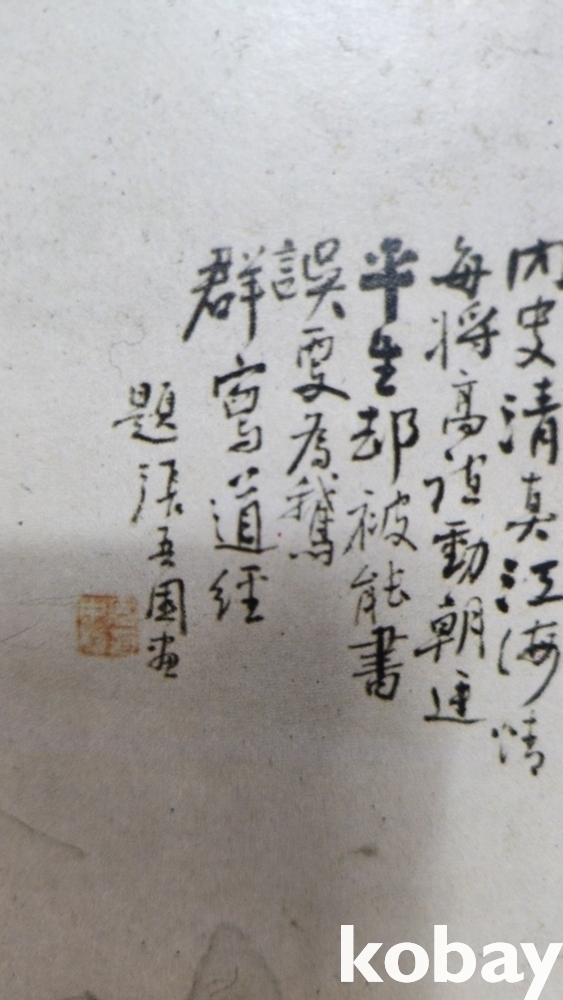 内史清真江海情
每將高誼動朝廷
平生却被能書
誤更為鵞
群寫道經
題張吾園畫
kobay